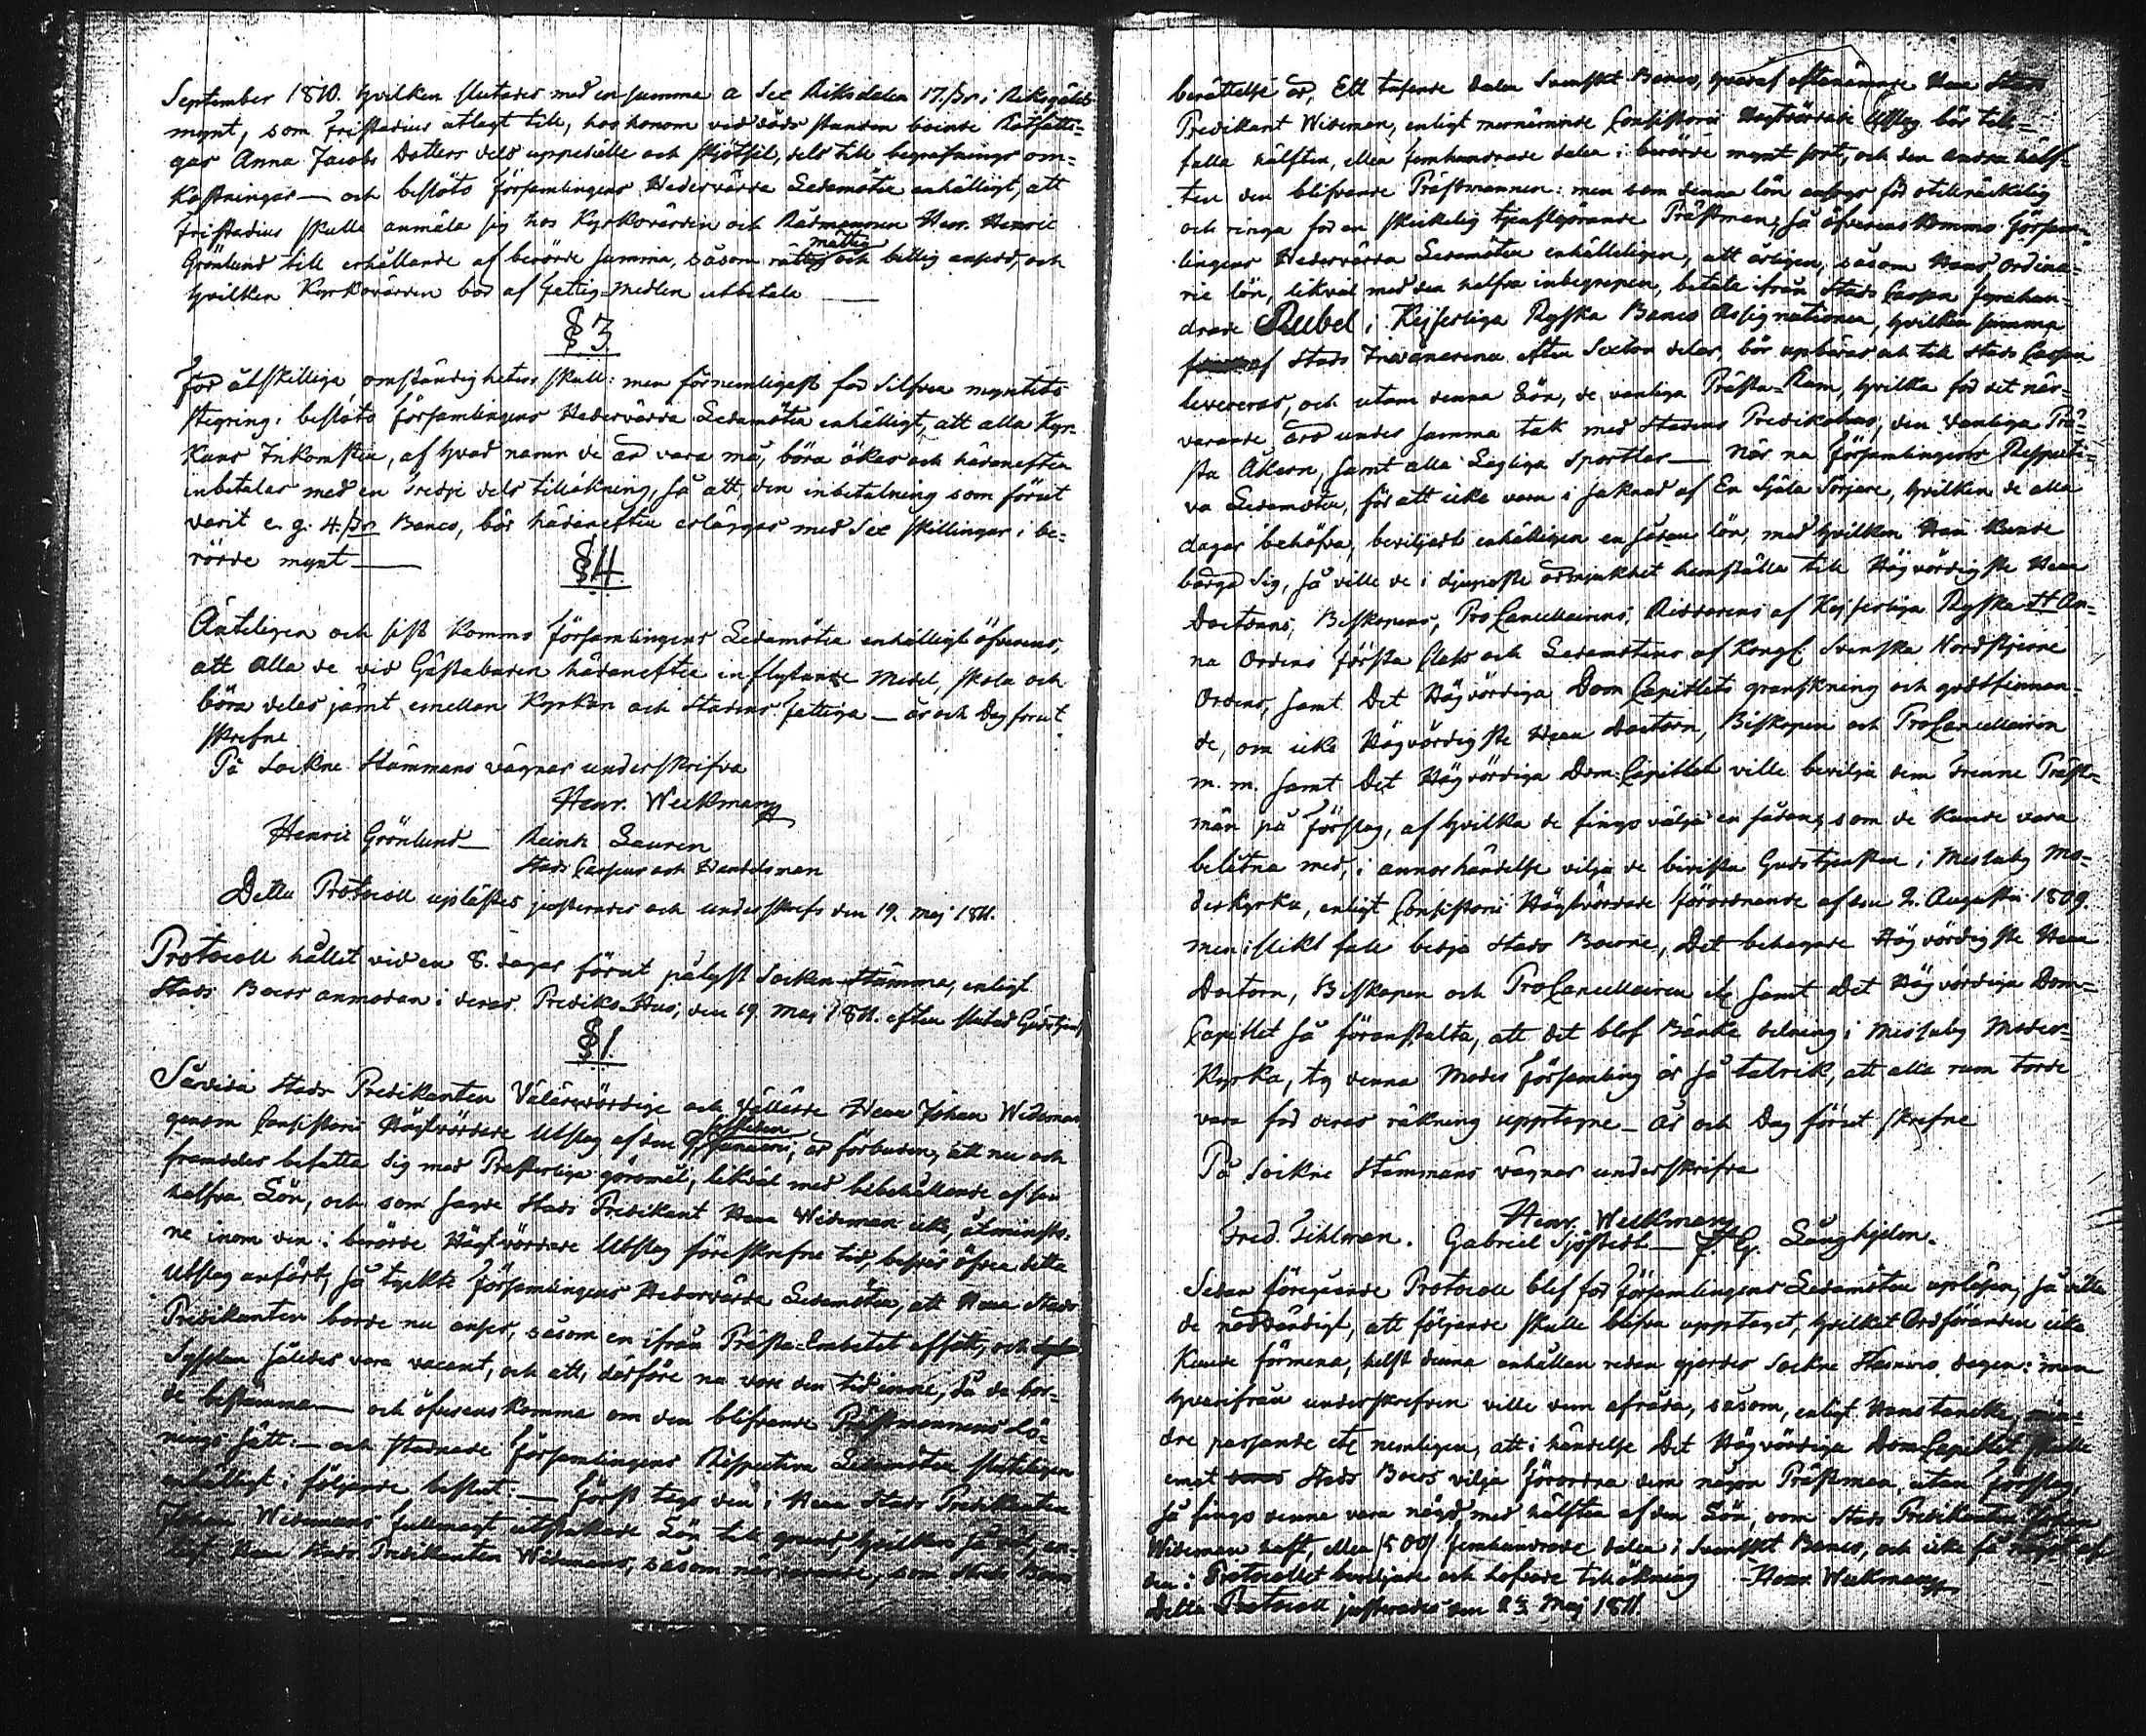 September 1810. hvilken slutades med en summa a Sex Riksdaler 17. sk i Riksgälds
mynt, som Fristadius utlagt till, hos honom vid döds stunden boende Rotfatti-
gas Anna Jacobs Dotters dels uppehälle och skjötsel, dels till begrafnings om-
kostningar — och beslöts Församlingens Hedervärda Ledamöter enhälligt, att
Fristadius skulle anmäla sig hos Kyrkovärden och Rådmannen Herr Henric
Grönlund till erhållande af berörde summa, såsom måttig och billig ansedd, och
hvilken Kyrkovärden bör af Fattig-Medlen utbetala —
§ 3
För åtskilliga omständigheters skull: men förnemligast för Silfver myntets
stegring, beslöts Församlingens Hedervärda Ledamöter enhälligt, att alla Kyr-
kans Inkomster, af hvad namn de än vara må, böra ökas och hädanefter
inbetalas med en tredje dels tillökning, så att den inbetalning som förut
varit e. g. 4 sk Banco, bör hädanefter erläggas med Sex skillingar i be-
rörde mynt —
§ 4.
Änteligen och sist kommo Församlingens Ledamöter enhälligt öfverens,
att Alla de vid Gästabuden hädanefter inflytande Medel, skola och
böra delas jämt emellan Kyrkan och Stadens fattiga — år och Dag förut
skrefne
På Sockne Stämmans vägnar underskrifva
Henr. Weckman
Henric Grönlund — Reinh Lauren
Stads Casseur och Handelsman
Detta Protocoll uplästes justerades och underskrefs den 19. Maj 1811.
Protocoll hållet vid en 8. dagar förut pålyst Socken-Stämma, enligt
Stads Boers anmodan i deras Prediko-Hus, den 19. Maj 1811. efter slutad Gudstjenst
§ 1.
Såvida Stads Predikanten Välärevördige och Vällärde Herr Johan Wideman
genom Consistorii Högtvördade Utslag af den Januarii, är förbuden, att nu och
framdeles befatta sig med Presterliga göromål, likväl med bibehållande af sin
halfva Lön, och som sagde Stads Predikant Herr Wideman icke, åtminsto-
ne inom den i berörde Högtvördade Utslag föreskrefne tid, besvär öfver detta
Utslag anfört, så tyckte Församlingens Hedervärda Ledamöter, att Herr Stads
Predikanten borde nu anses, såsom en ifrån Prästa-Embetet afsatt, och
Sysslan således vara vacant, och att, därföre nu vore den tid inne, då de bor-
de bestämma — och öfverenskomma om den blifvande Prästmannens Lö-
nings sätt: — och stadnade Församlingens Respective Ledamöter sluteligen
enhälligt i följande beslut: — Först togs den i Herr Stads Predikanten
Johan Widemans fullmagt utstakade Lön till grund, hvilken så väl, en-
ligt Herr Stads Predikanten Widemans, såsom närvarande, som Stads Boers
berättelse är, Ett tusende daler Svenskt Banco, hvaraf oftanämnde Herr Stads
Predikant Wideman, enligt mernämnde Consistorii Högtvördade Utslag bör till-
falla hälften, eller femhundrade daler i berörde mynt sort, och den andra hälf-
ten den blifvande Prästmannen: men som denna lön ansågs för otillräckelig
och ringa för en skickelig tjenstgörande Prästman, så öfverenskommo Försam-
lingens Hedervärda Ledamöter enhälleligen, att årligen, såsom Hans ordina-
rie lön, likväl med den halfva inbegrepen, betala ifrån Stads Cassan fyrahun-
drade Rubel i Kejserliga Ryska Banco Assignationer, hvilken summa
af Stads Invånarena efter Sexton delar, bör upbäras och till Stads Cassan
levereras, och utom denna Lön, de vanliga Prästa-Rum, hvilka för det när-
varande äro under samma tak med Stadens Predikohus, den vanliga Prä-
sta Åkern, samt alla Lagliga Sportler — När nu Församlingens Respecti-
va Ledamöter, för att icke vara i saknad af En Själa Sörjare, hvilken de alla
dagar behöfva, beviljadt enhälligen en sådan lön, med hvilken Han kunde
bärga Sig, så ville de i djupaste ödmjukhet hemställa till Högvördigste Herr
Doctorns, Biskopens, ProCancellairens, Riddarens af Kejserliga Ryska St An-
na Ordens första Class och Ledamotens af Kongl. Svenska Nordstjerne
Ordens, samt Det Högvördiga Dom Capitlets granskning och godtfinnan-
de, om icke Högvördigste Herr Doctorn, Biskopen och ProCancellairen
m. m. samt Det Högvördiga Dom-Capitlet ville bevilja dem trenne Präst-
män på Förslag, af hvilka de fingo välja en sådan, som de kunde vara
belåtna med, i annor händelse vilja de bevista Gudstjensten i Messuby Mo-
derkyrka, enligt Consistorii Högtvördade förordnande af den 2. Augusti 1809.
men i slikt fall bedja Stads Boerne, Det behagade Högvördigste Herr
Doctorn, Biskopen och ProCancellairen etc samt Det Högvördiga Dom-
Capitlet så föranstalta, att det blef Bänke delning i Messuby Moder-
Kyrka, ty denna Moder Församling är så talrik, att alla rum torde
vara för deras räkning upptagne — År och Dag förut skrefne
På Sockne Stämmans vägnar underskrifva
Henr. Weckman
Fred. Tihlman. Gabriel Sjöstedt — F. G. Långhjelm.
Sedan föregående Protocoll blef för Församlingens Ledamöter upläsen, så ville
de nödvändigt, att följande skulle blifva upptaget, hvilket Ordföranden icke
kunde förmena, helst denna anhållan redan gjordes Sockne Stämmo dagen: men
hvarifrån underskrefven ville dem afråda, såsom, enligt Hans tancke, min-
dre passande etc nemligen, att i händelse Det Högvördiga Dom-Capitlet skulle
emot Stads Boers vilja förordna dem någon Prästman, utan Förslag,
så fingo denne vara nögd med hälften af den Lön, som Stads Predikanten Johan
Wideman haft, eller (500) femhundrade daler i Svenskt Banco, och icke få något af
den i Protocollet beviljade och lofvade tillökning — Henr. Weckman
Detta Protocoll justerades den 23. Maj 1811.